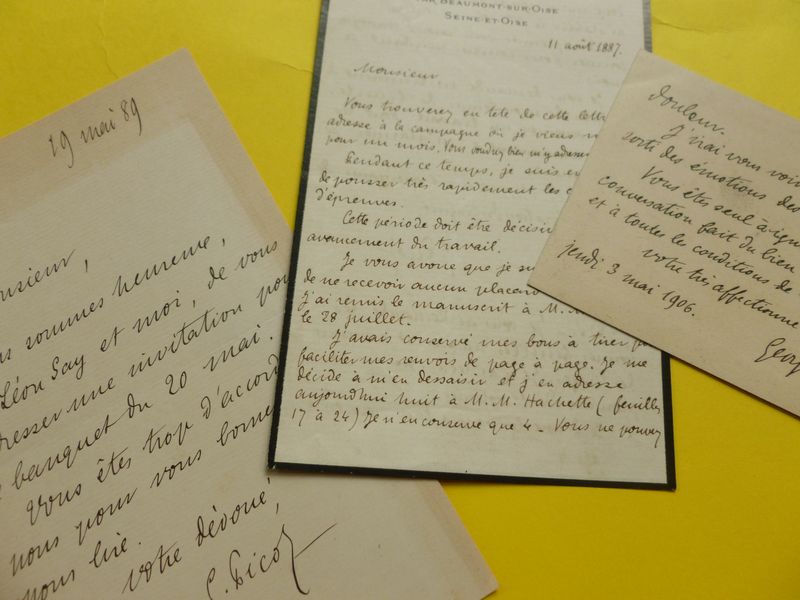 19 mai 89
nsieur,
s sommes heureux,
Léon Say et moi, de vous
resser une invitation pou
banquet du 20 mai.
Vous êtes trop d'accord
nous pour vous borner
nous lire.
votre dévoué,
G. Picot
PAR BEAUMONT-SUR-OISE
SEINE-ET-OISE
11 août 1887.
Monsieur
Vous trouverez en tête de cette lettre
adresse à la campagne où je viens
pour un mois. Vous voudrez bien m'y adresser
Pendant ce temps, je suis en
de pousser très rapidement les c
d'épreuves.
Cette période doit être décisiv
avancement du travail.
Je vous avoue que je su
de ne recevoir aucun placard
J'ai remis le manuscrit à M.
le 28 juillet.
J'avais conservé mes bons à tirer po
faciliter mes renvois de page à page. Je me
décide à m'en dessaisir et j'en adresse
aujourd'hui huit à M.M. Hachette (feuilles
17 à 24) Je n'en conserve que 4. Vous ne pouvez
douleur.
J'irai vous voir
sorti des émotions des
Vous êtes seul à ign
conversation fait du bien
et à toutes les conditions de
votre très affectionné
Jeudi 3 mai 1906.
Georg